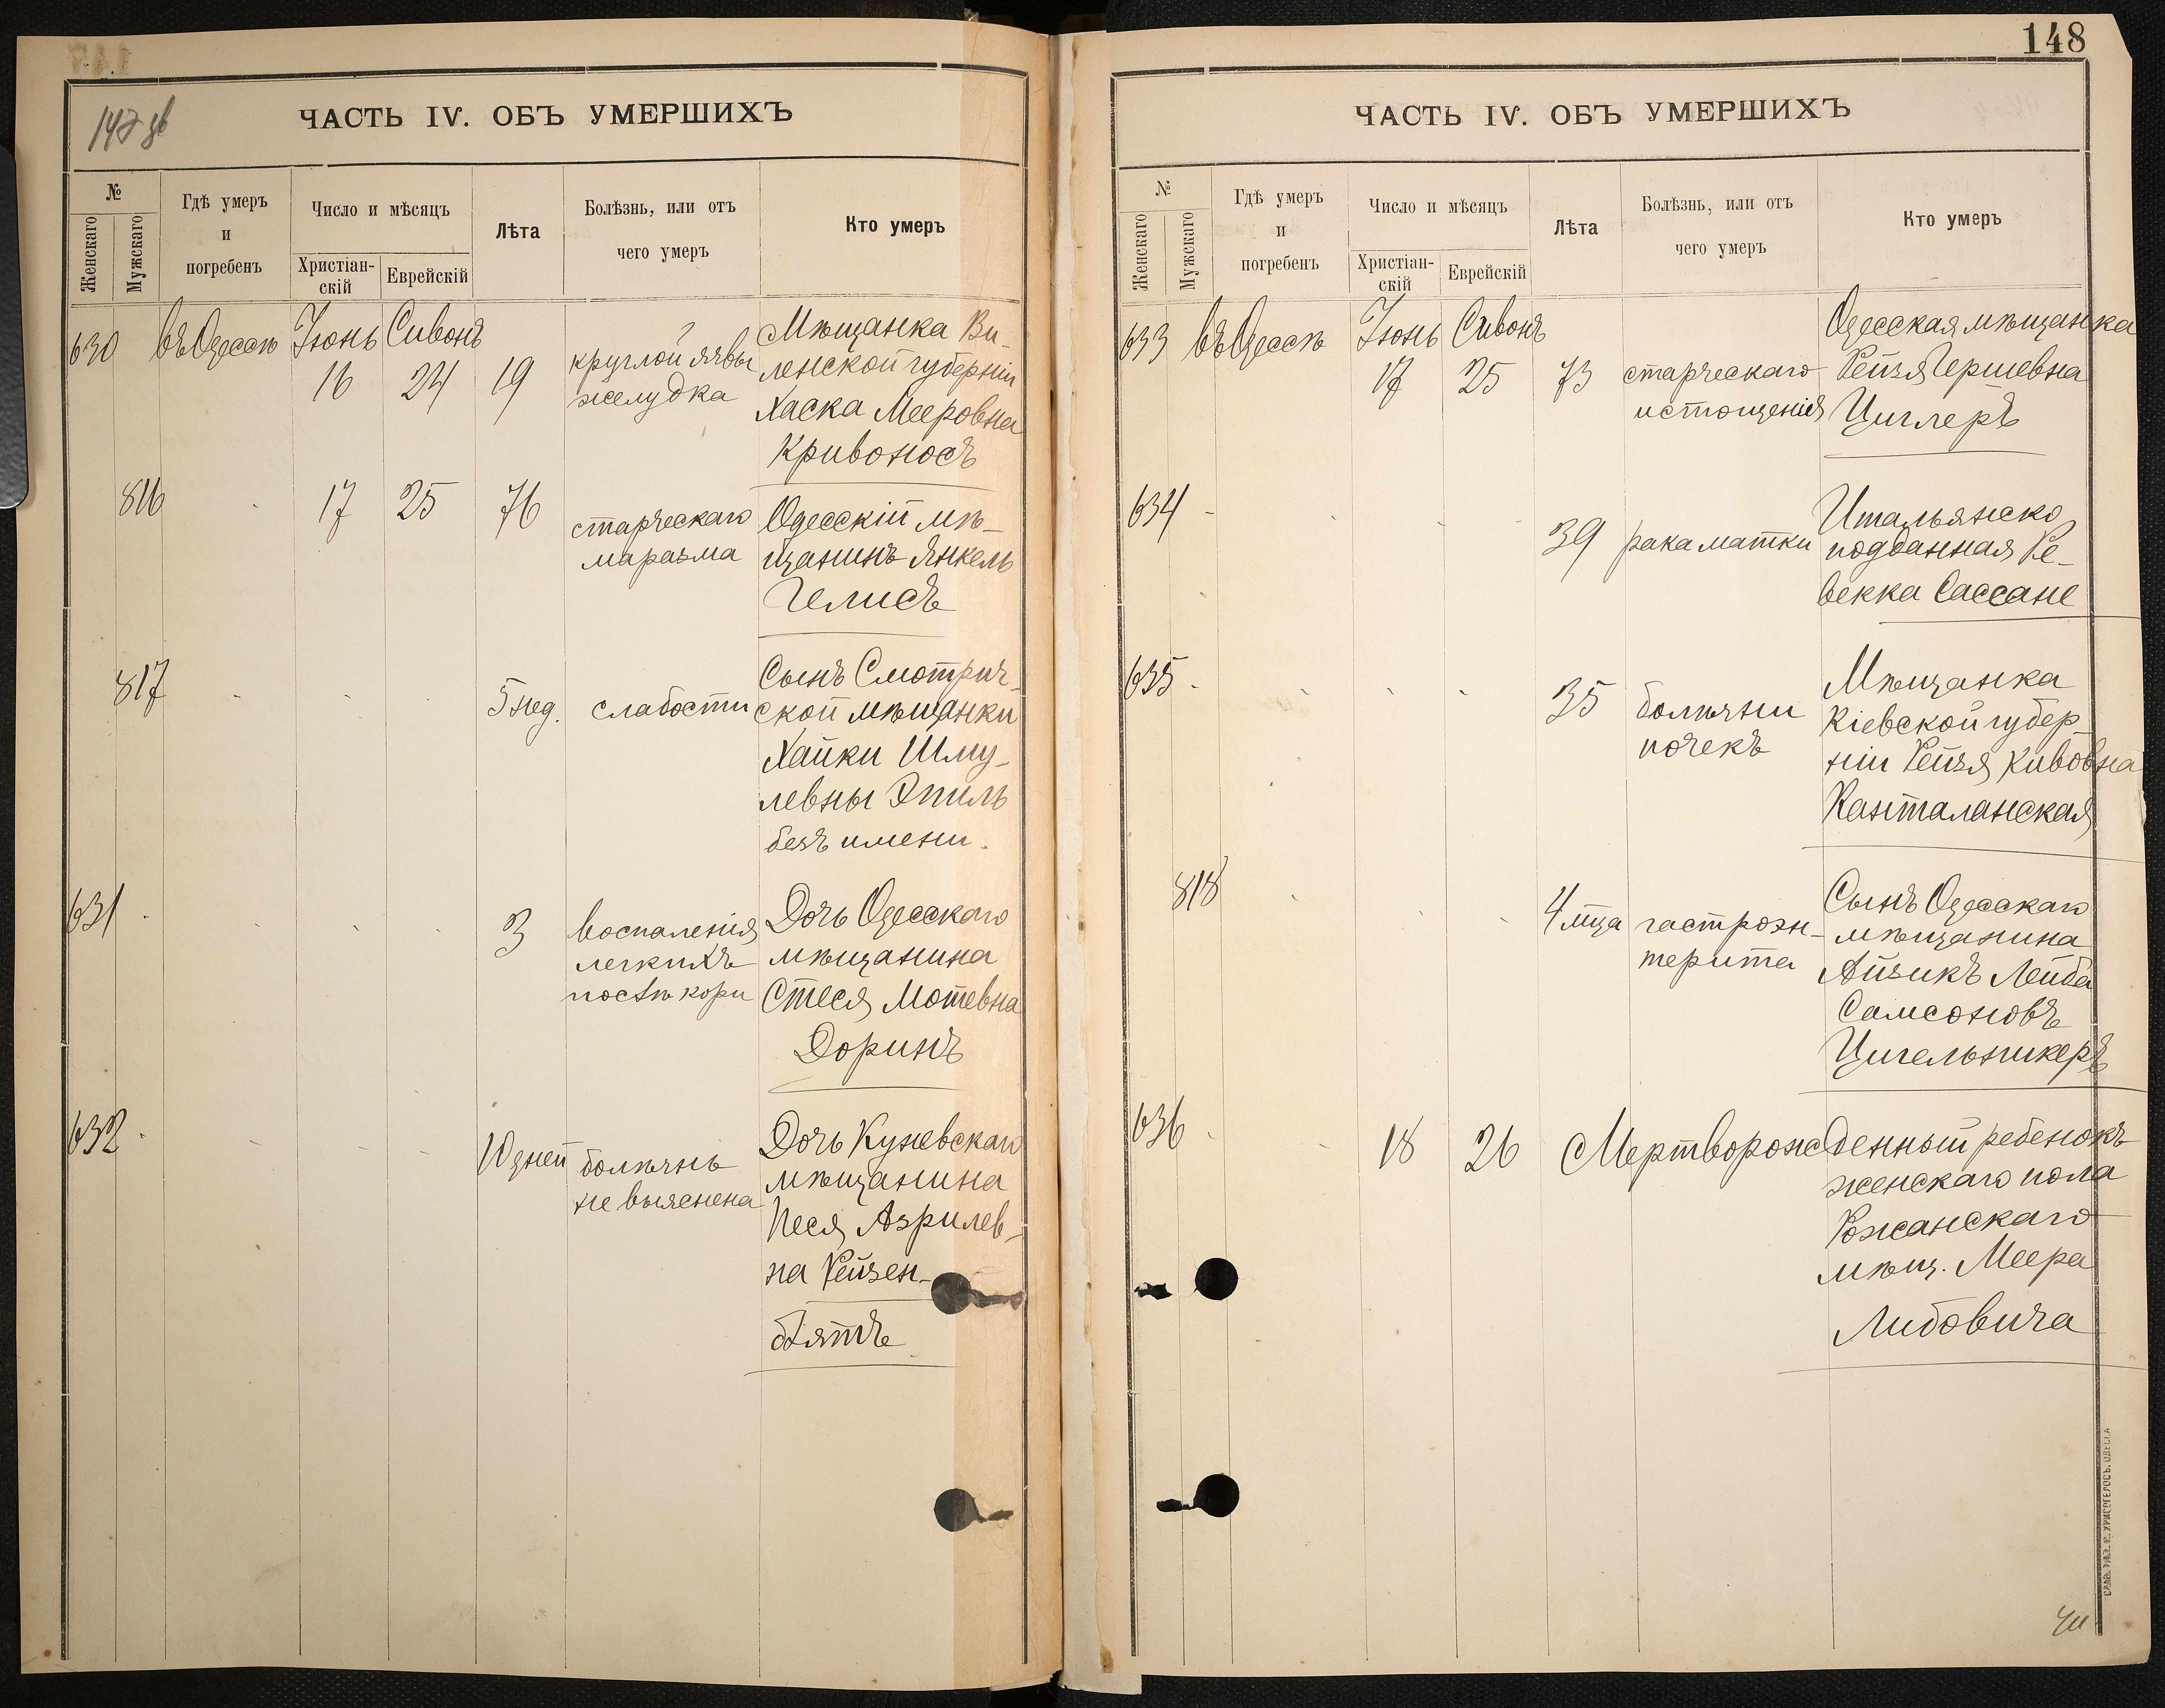 147 об
ЧАСТЬ IV. ОБЪ УМЕРШИХЪ
№
Женскаго
Мужскаго
Гдѣ умеръ
и
погребенъ
Число и мѣсяцъ
Христіан-
скій
Еврейскій
Лѣта
Болѣзнь, или отъ
чего умеръ
Кто умеръ
630 въ Одессѣ Іюнь Сивонъ
16 24 19
круглой язвы
желудка
Мѣщанка Ви-
ленской губерніи
Хаска Мееровна
Кривоносъ
816 17 25 76
старческаго
маразма
Одесскій мѣ-
щанинъ Янкель
Гелисъ
817 5 нед. слабости
Сынъ Смотрич-
ской мѣщанки
Хайки Шму-
левны Эпиль
безъ имени.
631 3
воспаленія
легкихъ
послѣ кори
Дочь Одесскаго
мѣщанина
Стеся Мотевна
Доринъ
632 10 дней
болѣзнь
не выяснена
Дочь Куневскаго
мѣщанина
Песя Азрилев-
на Рейзен-
блятъ
148
ЧАСТЬ IV. ОБЪ УМЕРШИХЪ
№
Женскаго
Мужскаго
Гдѣ умеръ
и
погребенъ
Число и мѣсяцъ
Христіан-
скій
Еврейскій
Лѣта
Болѣзнь, или отъ
чего умеръ
Кто умеръ
633 въ Одессѣ Іюнь Сивонъ
17 25 73
старческаго
истощенія
Одесская мѣщанка
Рейзя Гершевна
Циглеръ
634 39 рака матки
Итальянско
подданная Ре-
векка Сассане
635 35
болѣзни
почекъ
Мѣщанка
Кіевской губер-
ніи Рейзя Кивовна
Канталанская
818 4 мца
гастроэн-
терита
Сынъ Одесскаго
мѣщанина
Айзикъ Лейба
Самсоновъ
Цигельникеръ
636 18 26 Мертворожденный ребенокъ
женскаго пола
Рожанскаго
мѣщ. Меера
Либовича